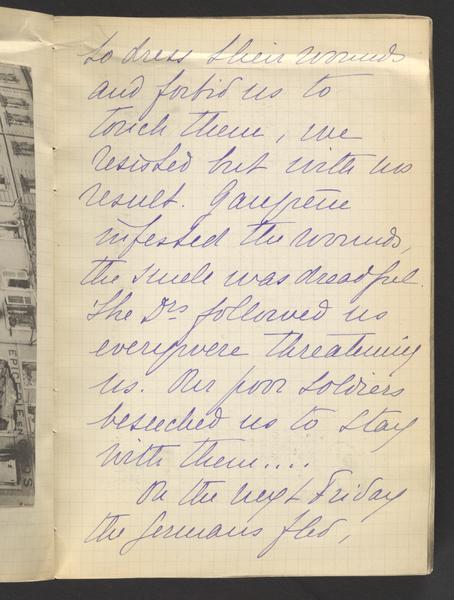 to dress their wounds
and forbid us to
touch them, we
resisted but with no
result. Gangrène
infested the wounds,
the smele was dreadful.
The Drs followed us
everywere threatening
us. Our poor soldiers
beseeched us to stay
with them....
On the next Friday
the germans fled,
EPICERIE